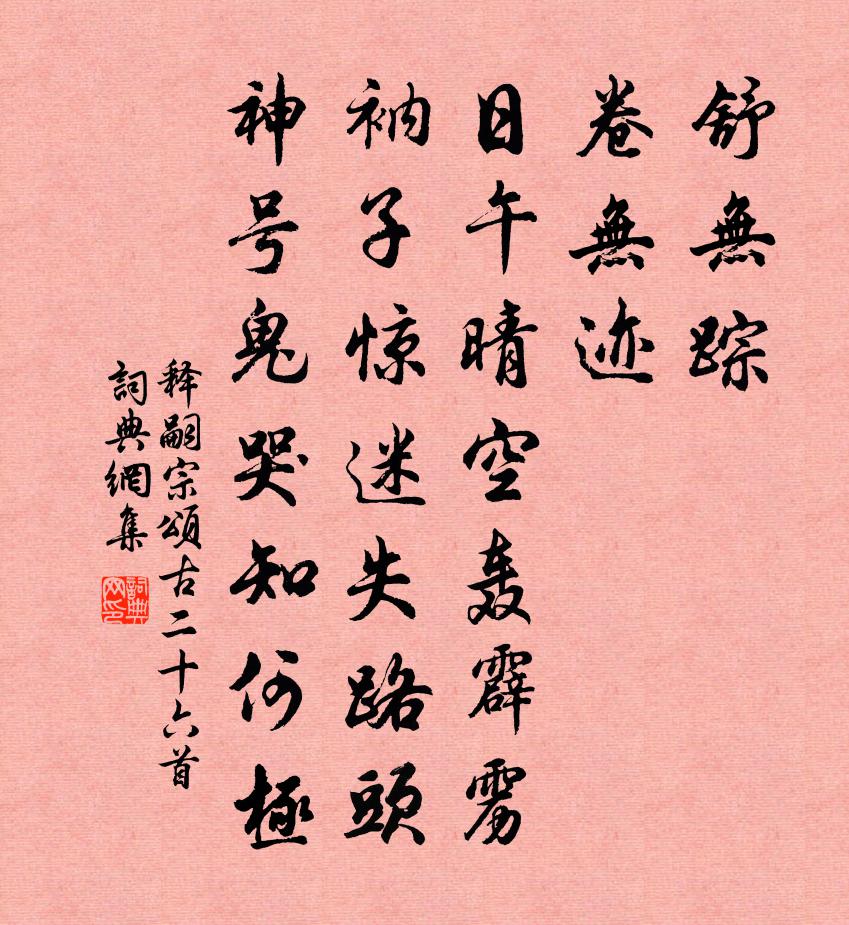 舒無踪
卷無迹
日午晴空轰霹雳
衲子惊迷失路頭
神号鬼哭知何極
释嗣宗頌古二十六首
詞典網集
詞典网印